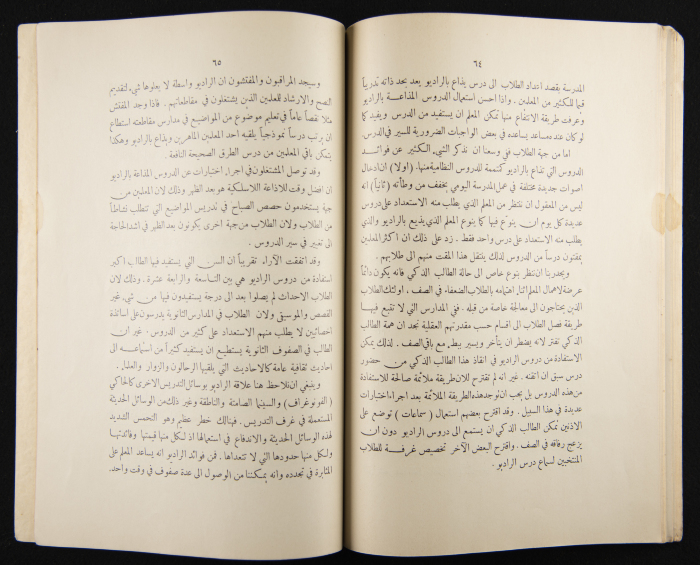 ٦٤
المدرسة بقصد اعداد الطلاب الى درس يذاع بالراديو يعد بحد ذاته تدريباً
قيماً للكثير من المعلمين. واذا احسن استعمال الدروس المذاعة بالراديو
وعرفت طريقة الانتفاع منها تمكن المعلم ان يستفيد من الدرس ويفيد كما
لو كان عنده مساعد يساعده في بعض الواجبات الضرورية للسير في الدرس.
اما من جهة الطلاب ففي وسعنا ان نذكر الشيء الكثير عن فوائد
الدروس التي تذاع بالراديو كتتمة للدروس النظامية منها. (اولا) ان ادخال
اصوات جديدة مختلفة في عمل المدرسة اليومي يخفف من وطأته (ثانياً) انه
ليس من المعقول ان ننتظر من المعلم الذي يطلب منه الاستعداد على دروس
عديدة كل يوم ان ينوع فيها كما ينوع المعلم الذي يذيع بالراديو والذي
يطلب منه الاستعداد على درس واحد فقط. زد على ذلك ان اكثر المعلمين
يمقتون درساً من الدروس لذلك ينتقل هذا المقت منهم الى طلابهم.
ويجدر بنا ان ننظر بنوع خاص الى حالة الطالب الذكي فانه يكون دائماً
عرضة لاهمال المعلم اثناء اهتمامه بالطلاب الضعفاء في الصف، اولئك الطلاب
الذين يحتاجون الى معالجة خاصة من قبله. ففي المدارس التي لا تتبع فيها
طريقة فصل الطلاب الى اقسام حسب مقدرتهم العقلية نجد ان همة الطالب
الذكي تفتر لانه يضطر ان يتأخر ويسير ببطء مع باقي الصف. لذلك يمكن
الاستفادة من دروس الراديو في انقاذ هذا الطالب الذكي من حضور
درس سبق ان اتقنه. غير انه لم تقترح للان طريقة ملائمة صالحة للاستفادة
من هذه الدروس بل يجب ان توجد هذه الطريقة الملائمة بعد اجراء اختبارات
عديدة في هذا السبيل. وقد اقترح بعضهم استعمال (سماعات) توضع على
الاذنين تمكن الطالب الذكي ان يستمع الى دروس الراديو دون ان
يزعج رفاقه في الصف. واقترح البعض الآخر تخصيص غرفة للطلاب
المنتخبين لسماع درس الراديو.
٦٥
وسيجد المراقبون والمفتشون ان الراديو واسطة لا يعلوها شيء لتقديم
النصح والارشاد للمعلمين الذين يشتغلون في مقاطعاتهم. فاذا وجد المفتش
مثلا نقصاً عاماً في تعليم موضوع من المواضيع في مدارس مقاطعته استطاع
ان يرتب درساً نموذجياً يلقيه احد المعلمين الماهرين ويذاع بالراديو وهكذا
يتمكن باقي المعلمين من درس الطرق الصحيحة النافعة.
وقد توصل المشتغلون في اجراء اختبارات عن الدروس المذاعة بالراديو
ان افضل وقت للاذاعة اللاسلكية هو بعد الظهر وذلك لان المعلمين من
جهة يستخدمون حصص الصباح في تدريس المواضيع التي تتطلب نشاطاً
من الطلاب ولان الطلاب من جهة اخرى يكونون بعد الظهر في اشد الحاجة
الى تغيير في سير الدروس.
وقد اتفقت الآراء تقريباً ان السن التي يستفيد فيها الطالب اكبر
استفادة من دروس الراديو هي بين التاسعة والرابعة عشرة. وذلك لان
الطلاب الاحداث لم يصلوا بعد الى درجة يستفيدون فيها من شيء غير
القصص والموسيقى ولان الطلاب في المدارس الثانوية يدرسون على اساتذة
اخصائيين لا يطلب منهم الاستعداد على كثير من الدروس. غير ان
الطالب في الصفوف الثانوية يستطيع ان يستفيد كثيراً من استماعه الى
احاديث ثقافية عامة كالاحاديث التي يلقيها الرحالون والزوار والعلماء.
وينبغي ان نلاحظ هنا علاقة الراديو بوسائل التدريس الاخرى كالحاكي
(الفونوغراف) والسينما الصامتة والناطقة وغير ذلك من الوسائل الحديثة
المستعملة في غرف التدريس. فهنالك خطر عظيم وهو التحمس الشديد
لهذه الوسائل الحديثة والاندفاع في استعمالها اذ لكل منها قيمتها وفائدتها
ولكل منها حدودها التي لا تتعداها. فمن فوائد الراديو انه يساعد المعلم على
المثابرة في تجدده وانه يمكننا من الوصول الى عدة صفوف في وقت واحد.